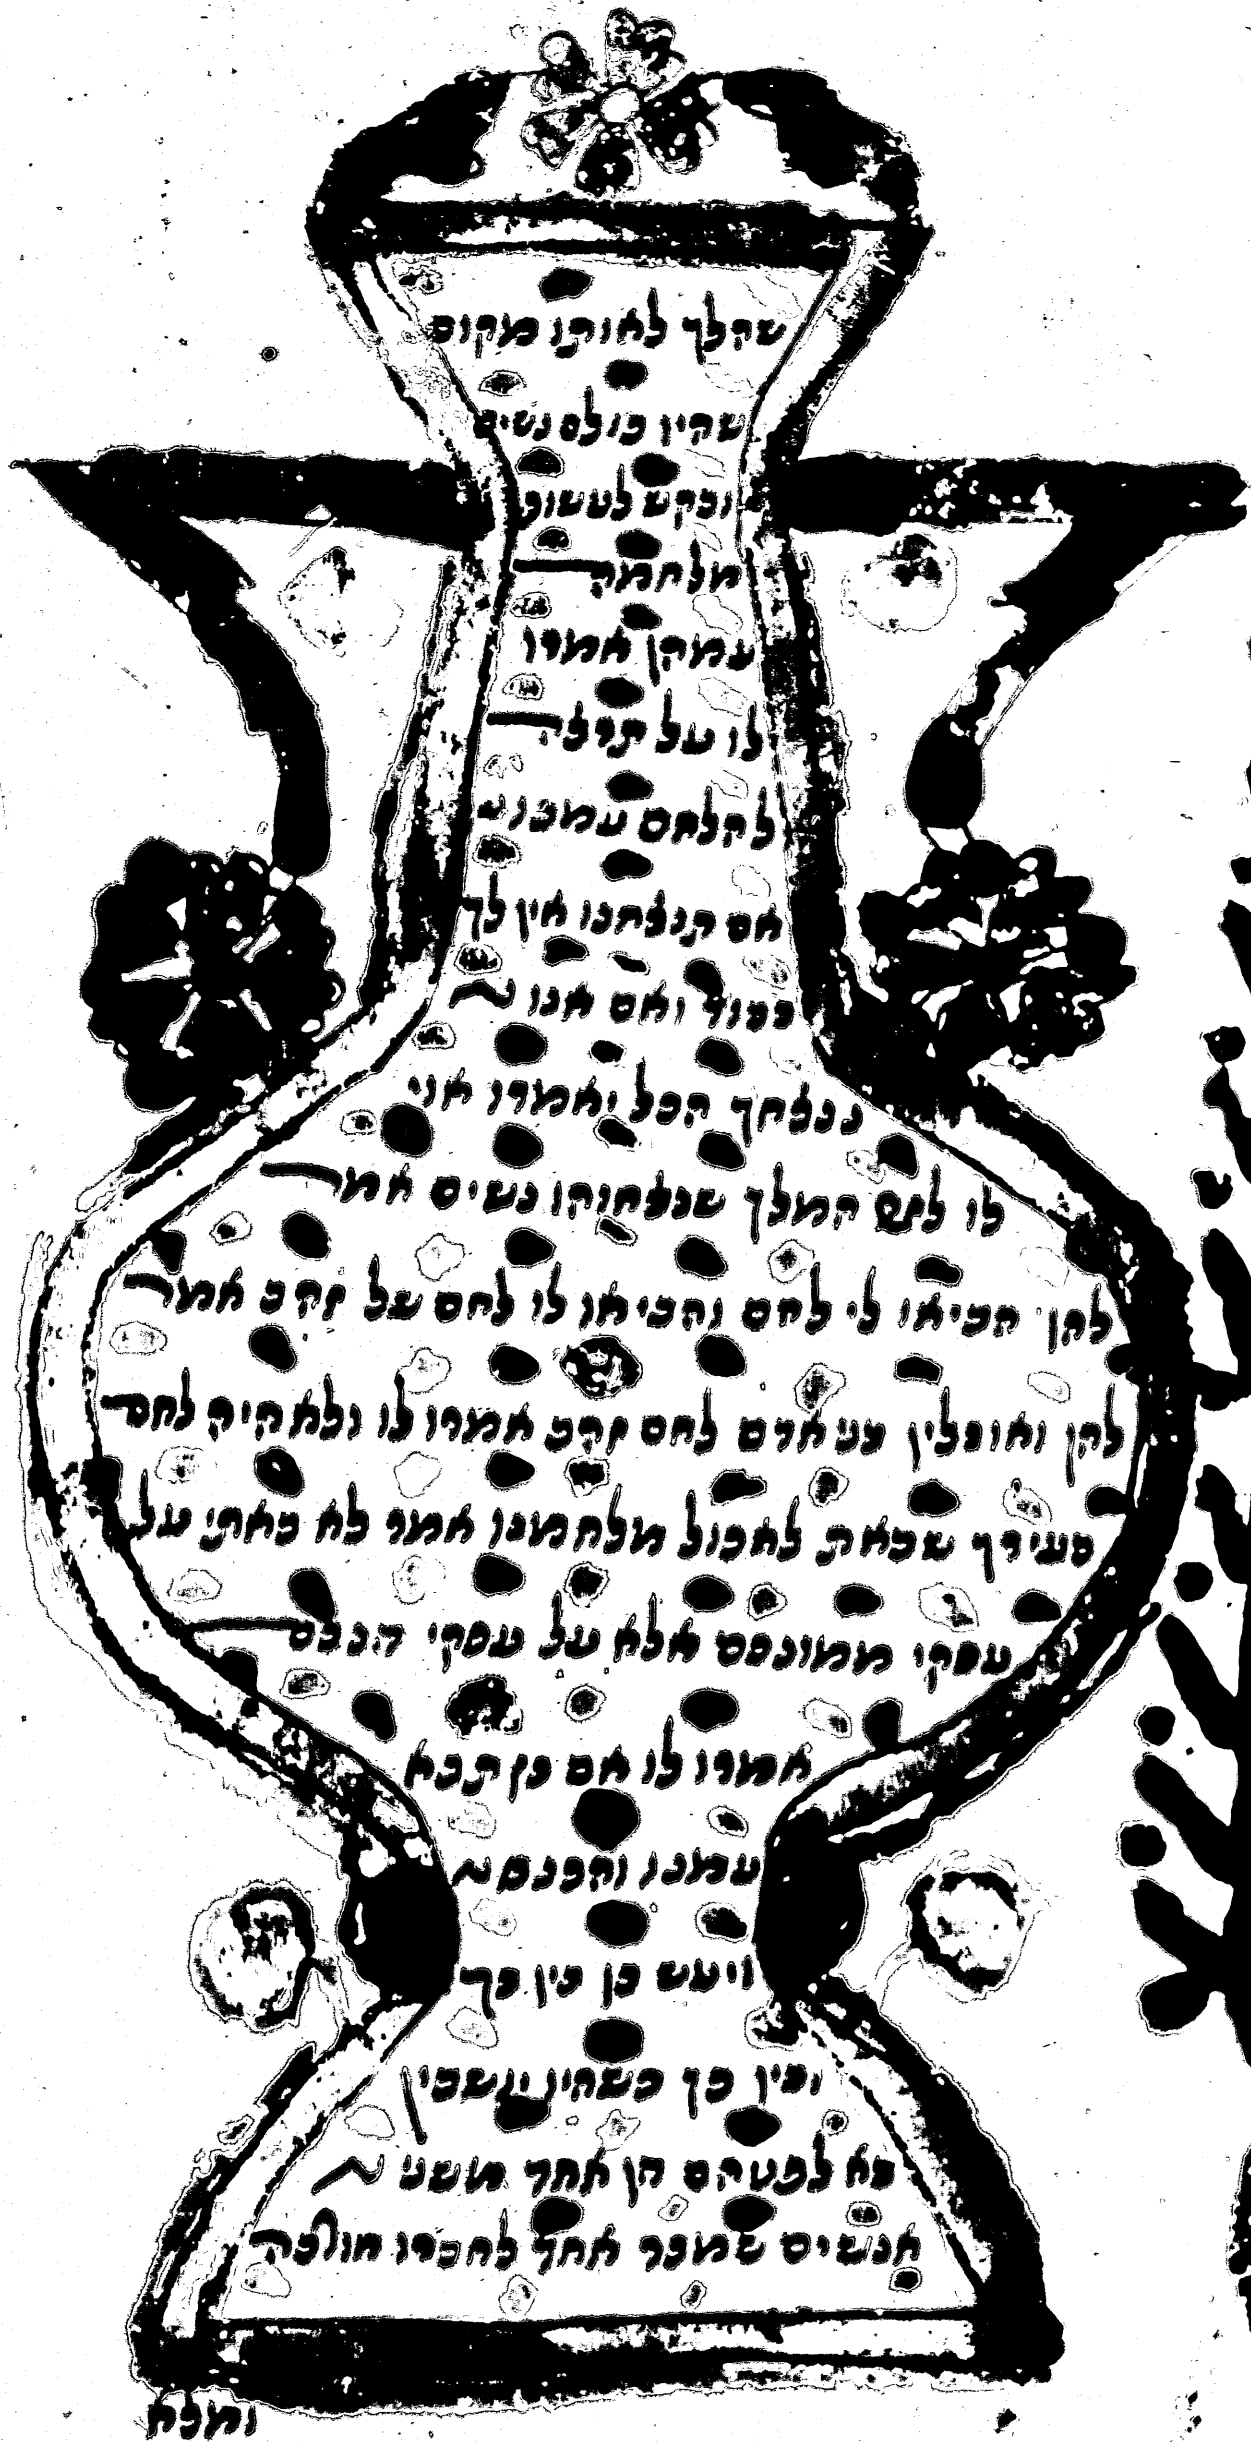 שהלך לאותו מקום
שהיו כולם נשים
ובקש לעשות
מלחמה
עמהן אמרו
לו על תרצה
להלחם עמנו
אם תנצחנו אין לך
כבוד ואם אנו
ננצחך הכל יאמרו אוי
לו המלך שנצחוהו נשים אמר
להן הביאו לי לחם והביאו לו לחם של זהב אמר
להן ואוכלין בני אדם לחם זהב אמרו לו ולא היה לחם
בעירך שבאת לאכול מלחמנו אמר לא באתי על
עסקי ממונכם אלא על עסקי הנכם
אמרו לו אם כן תבא
עמנו והכנס
ויעש כן בין כך
ובין כך כשהיו יושבין
בא לפניהם הן אחד משני
אנשים שמכר אחד לחברו חורבה
ומצא